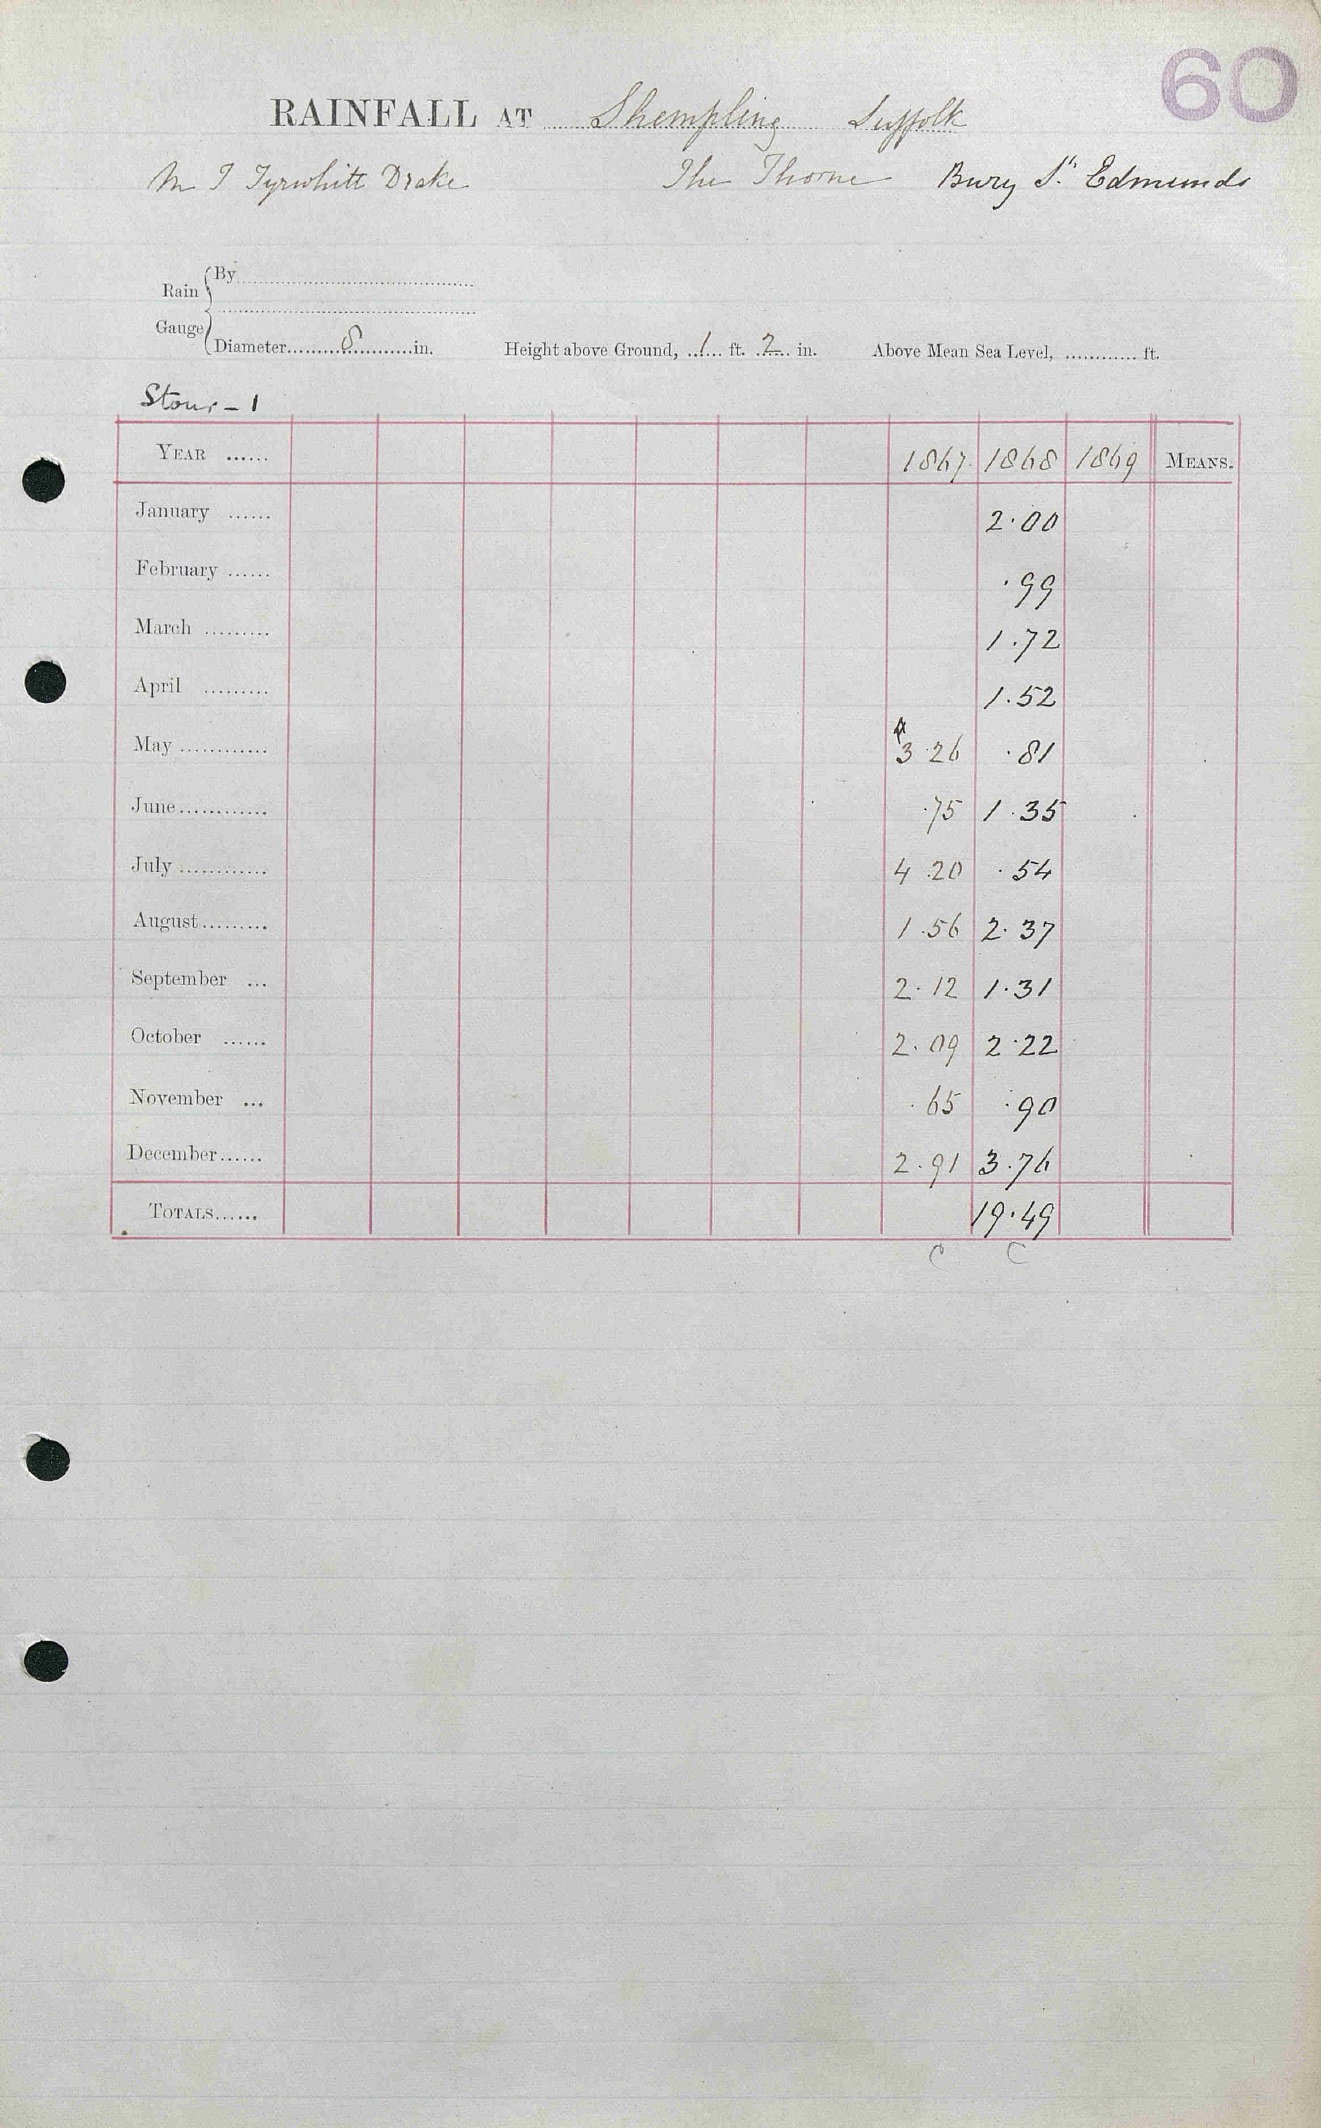 60
RAINFALL AT Shempling Suffolk
M T Tyrwhitt Drake The Thorne Bury St. Edmunds
Rain Gauge
By
Diameter 8 in. Height above Ground, 1 ft. 2 in. Above Mean Sea Level, ft.
Stour - 1
YEAR ...... 1867 1868 1869 MEANS.
January ...... 2.00
February ...... .99
March ......... 1.72
April ......... 1.52
May ............ 3.26 .81
June ............ .75 1.35
July ............ 4.20 .54
August ......... 1.56 2.37
September ... 2.12 1.31
October ...... 2.09 2.22
November ... .65 .90
December ...... 2.91 3.76
TOTALS ...... 19.49
C C